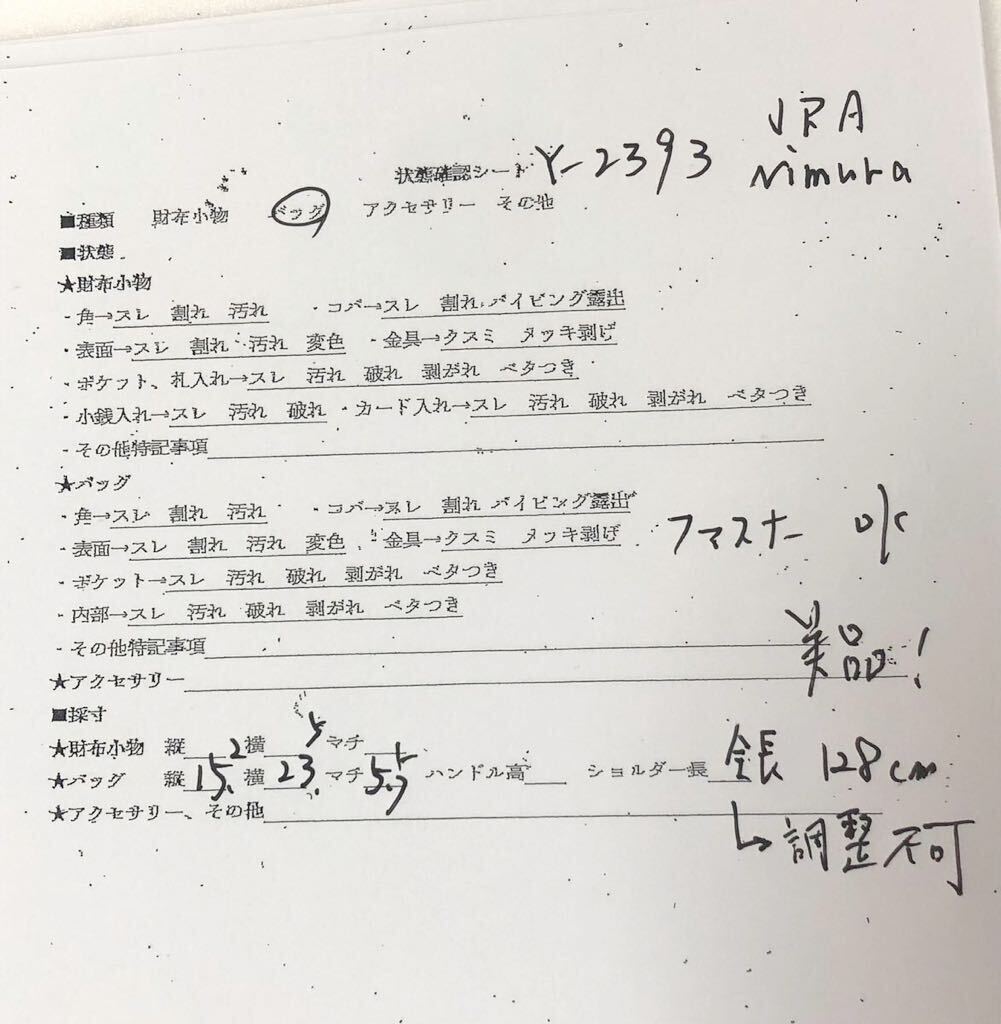 JRA
nimura
状態確認シート Y-2393
■種類 財布小物 バッグ アクセサリー その他
■状態
★財布小物
・角→スレ 割れ 汚れ ・コバ→スレ 割れ パイピング露出
・表面→スレ 割れ 汚れ 変色 ・金具→クスミ メッキ剥げ
・ポケット、札入れ→スレ 汚れ 破れ 剥がれ ベタつき
・小銭入れ→スレ 汚れ 破れ ・カード入れ→スレ 汚れ 破れ 剥がれ ベタつき
・その他特記事項
★バッグ
・角→スレ 割れ 汚れ ・コバ→スレ 割れ パイピング露出
・表面→スレ 割れ 汚れ 変色 ・金具→クスミ メッキ剥げ ファスナー ok
・ポケット→スレ 汚れ 破れ 剥がれ ベタつき
・内部→スレ 汚れ 破れ 剥がれ ベタつき
・その他特記事項 美品!
★アクセサリー
■採寸
★財布小物 縦 横 マチ
★バッグ 縦 15.2 横 23.5 マチ ハンドル高 ショルダー長 全長 128cm
★アクセサリー、その他
↳調整不可